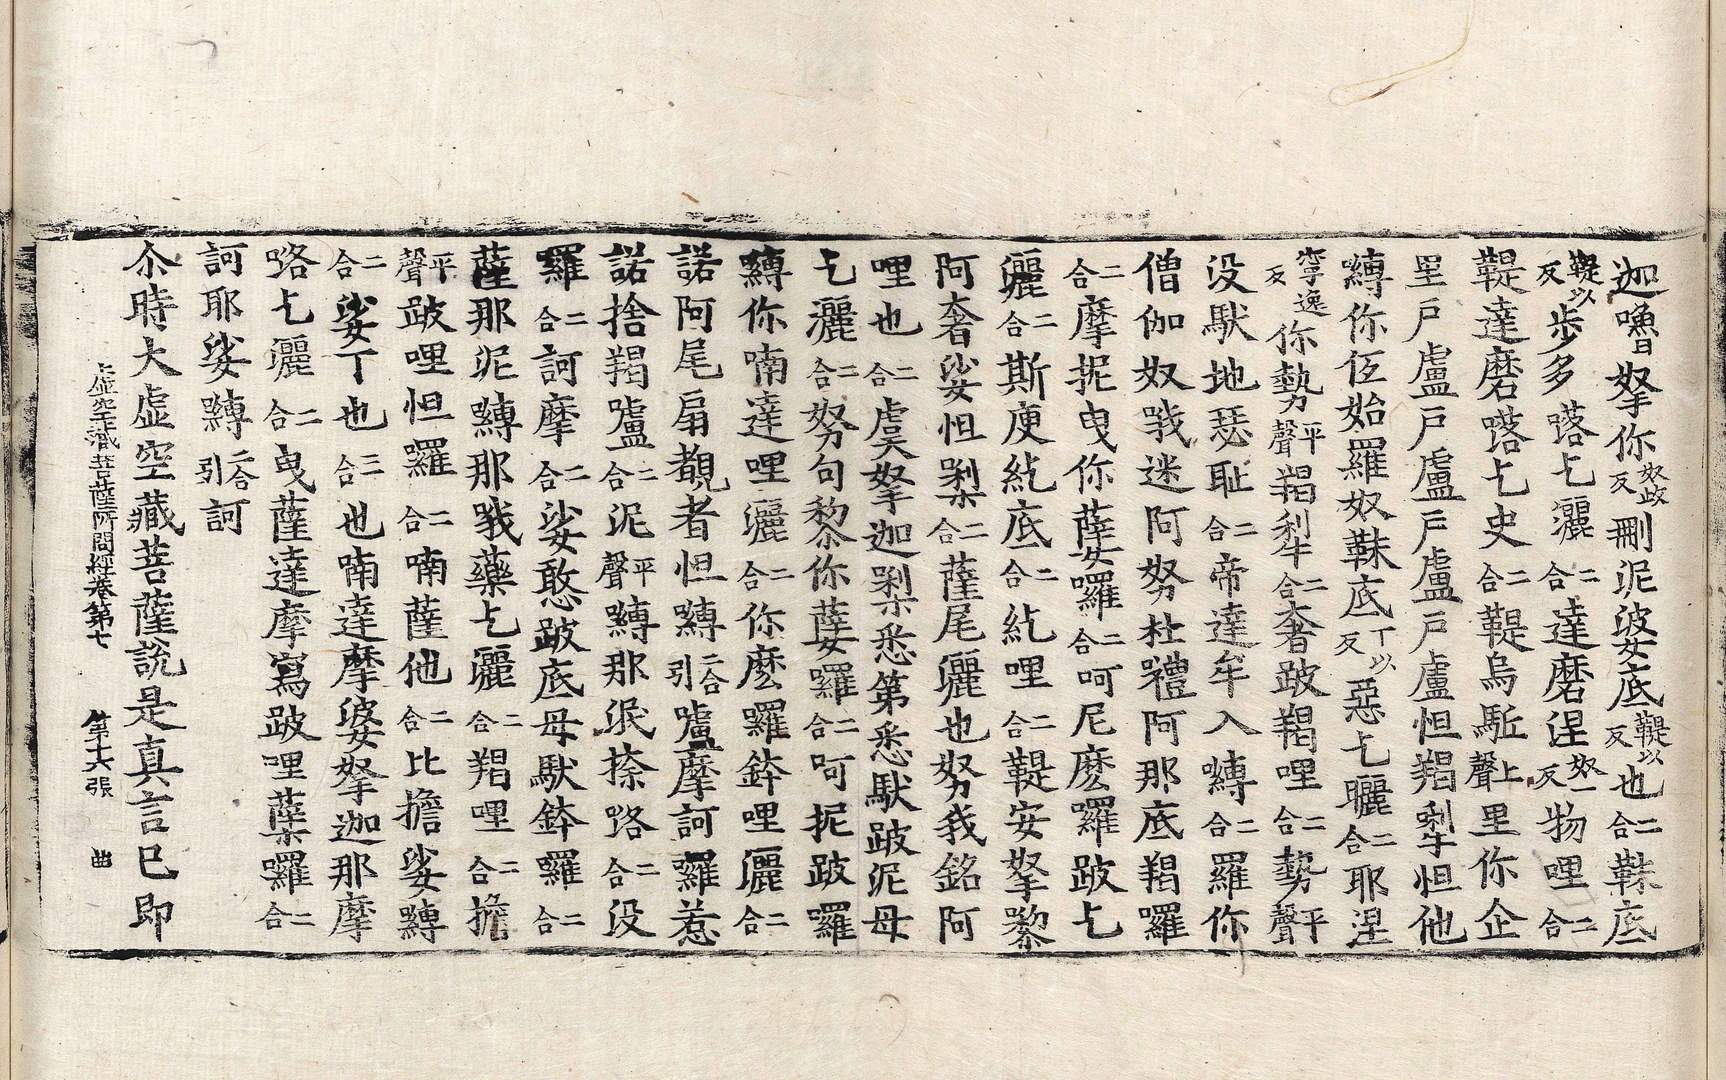 迦嚕拏你奴致反刪泥婆底鞮以反也二合靺底
鞮以反步多㗶乇灑二合達磨涅奴一反物哩二合
鞮達磨㗶乇史二合鞮烏駈上聲里你企
里戶盧戶盧戶盧戶盧怛羯唎怛他
嚩你伍始羅奴靺底丁以反惡乇曬二合耶涅
寧逸反你勢平聲羯利二合奢跛羯哩二合勢平聲
没馱地瑟耻二合帝達牟入嚩二合羅你
僧伽奴哦迷阿努杜禮阿那底羯囉
二合摩抳曳你薩囉二合呵尼麽囉跛乇
灑二合斯庾紇底二合紇哩二合鞮安拏黎
阿奢娑怛梨二合薩尾灑也努我銘阿
哩也二合虞拏迦梨悉第悉馱跛泥母
乇灑二合努句黎你薩囉二合呵抳跛囉
嚩你喃達哩灑二合你麽囉鉢哩灑二合
諾阿尾扇覩者怛嚩二合引嚧摩訶囉惹
諾捨羯嚧二合泥平聲嚩那泯捺路二合没
羅二合訶摩二合娑憨跛底母馱鉢囉二合
薩那泥嚩那哦藥乇灑二合羯哩二合擔
平聲跛哩怛羅二合喃薩他二合比擔娑嚩
二合娑丁也三合也喃達摩婆拏迦那摩
咯乇灑二合曳薩達摩寫跛哩藥囉二合
訶耶娑嚩二合引訶
尒時大虛空藏菩薩說是真言已即
大虛空藏菩薩所問經卷第七　第十六張　曲